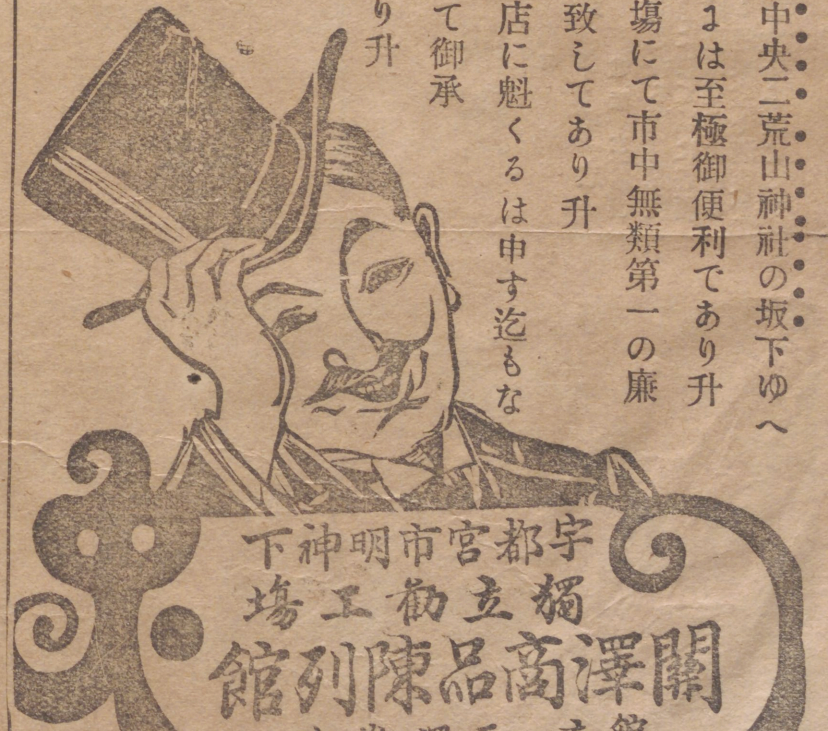 中央二荒山神社の坂下ゆへ
は至極御便利であり升
塲にて市中無類第一の廉
致してあり升
店に魁くるは申す迄もな
て御承
り升
宇都宮市明神下
獨立勸工塲
關澤商品陳列館